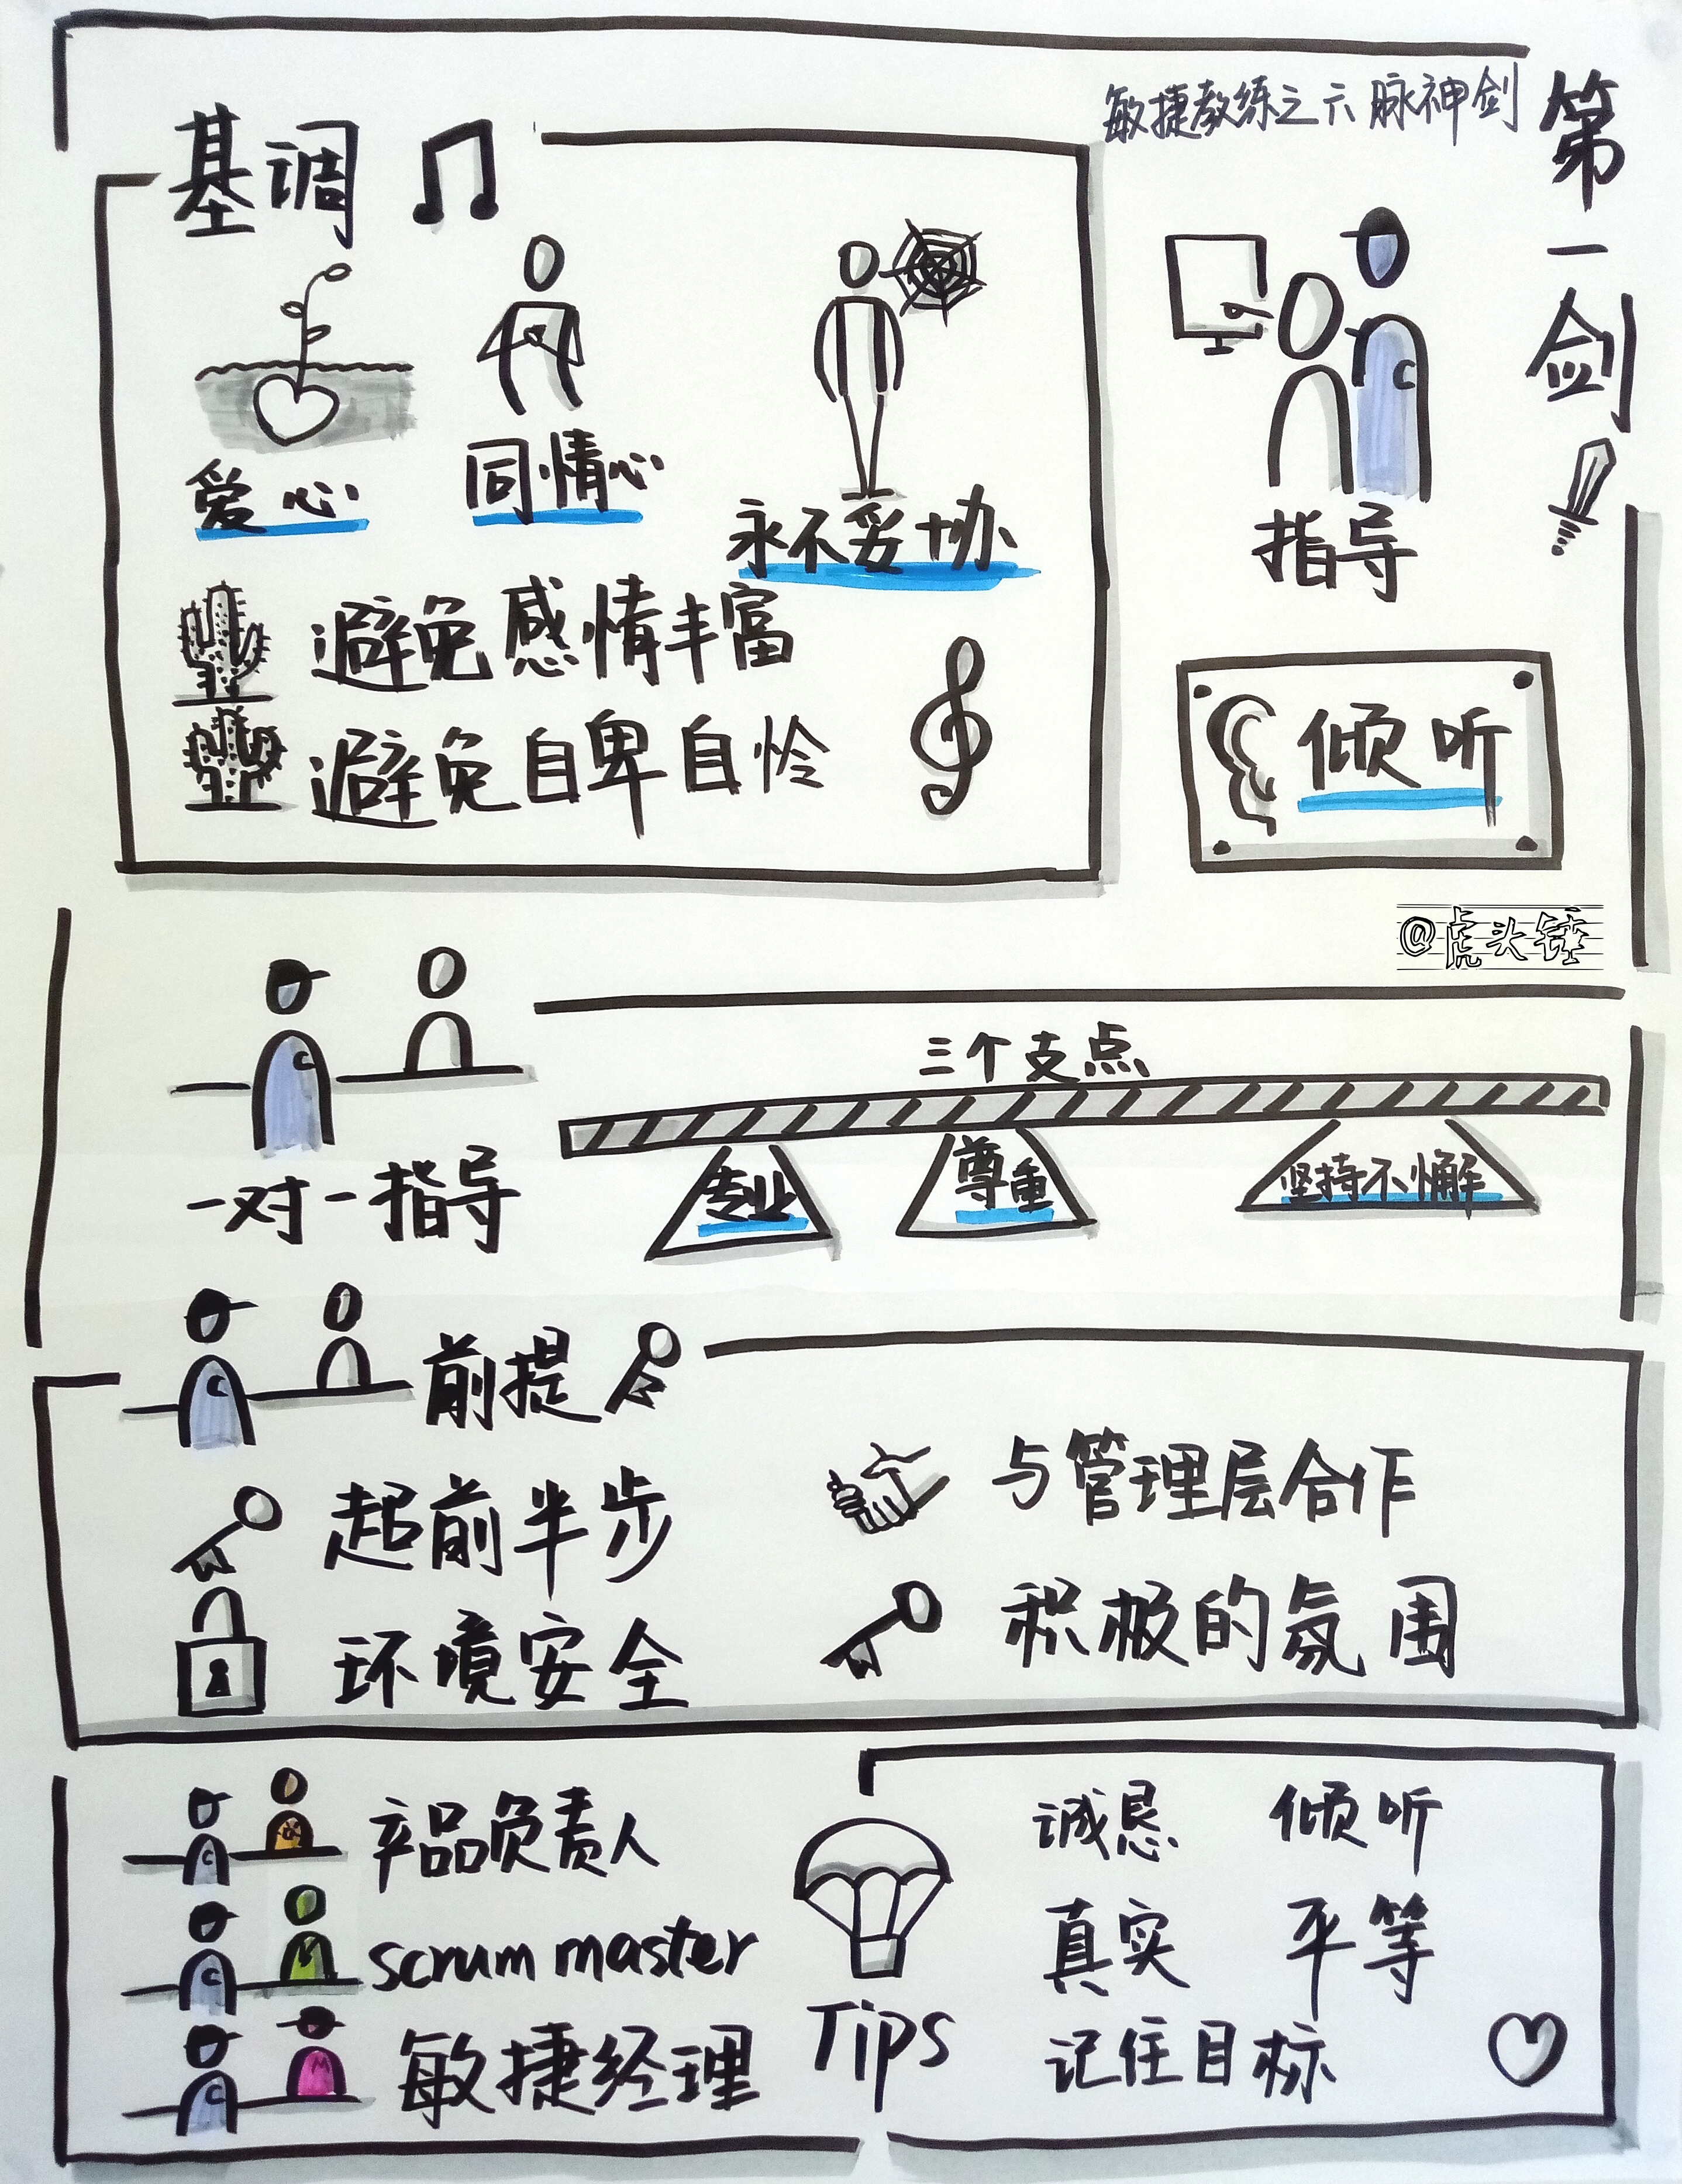 敏捷教练之六脉神剑
第一剑
基调
爱心
同情心
永不妥协
避免感情丰富
避免自卑自怜
指导
倾听
@虎头锤
一对一指导
三个支点
专业
尊重
坚持不懈
前提
超前半步
与管理层合作
环境安全
积极的氛围
产品负责人
scrum master
敏捷经理
Tips
诚恳 倾听
真实 平等
记住目标